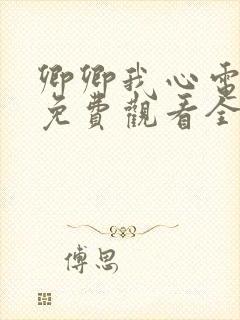 卿卿我心電
免費觀看全
傅思